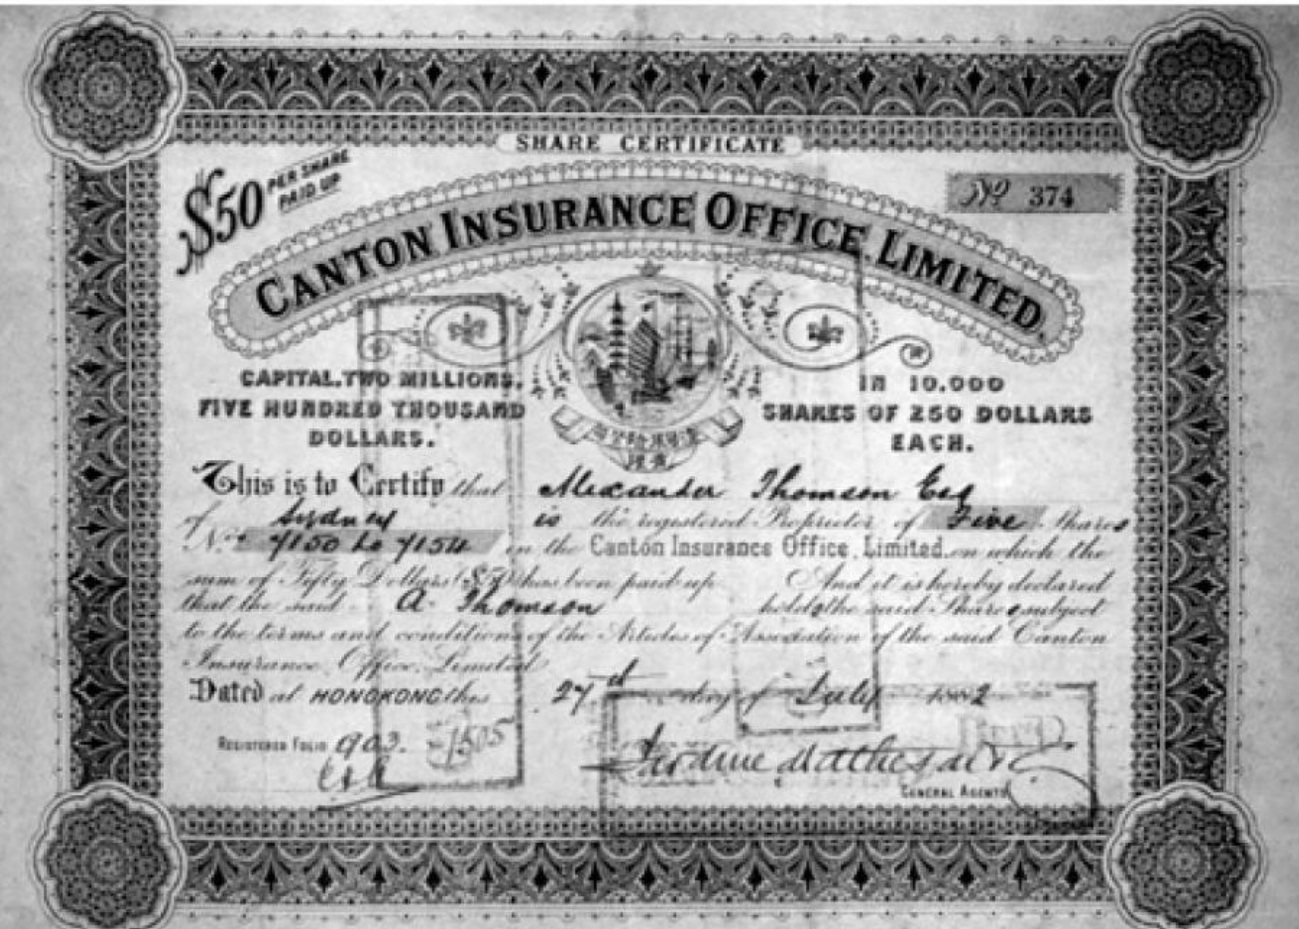 SHARE CERTIFICATE
$50 PER SHARE PAID UP
No 374
CANTON INSURANCE OFFICE LIMITED.
CAPITAL. TWO MILLIONS.
FIVE HUNDRED THOUSAND
DOLLARS.
IN 10.000
SHARES OF 250 DOLLARS
EACH.
This is to Certify that Alexander Thomson Esq
of Sydney is the registered Proprietor of Five Shares
Nos 7150 to 7154 in the Canton Insurance Office, Limited, on which the
sum of Fifty Dollars ($50) has been paid up And it is hereby declared
that the said A. Thomson holds the said Shares subject
to the terms and conditions of the Articles of Association of the said Canton
Insurance Office, Limited
Dated at HONGKONG this 27th day of July 1882
REGISTERED FOLIO 903.
1505
Jardine Matheson & Co
GENERAL AGENTS